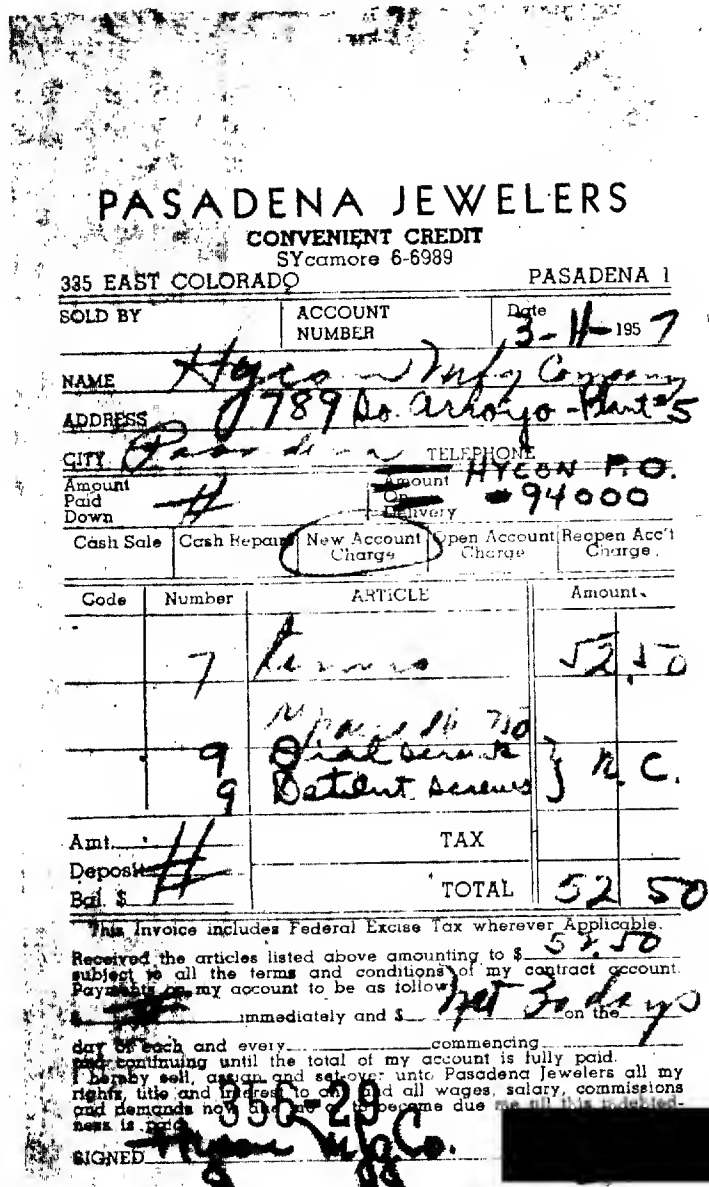 PASADENA JEWELERS
CONVENIENT CREDIT
SYcamore 6-6989
335 EAST COLORADO PASADENA 1
SOLD BY ACCOUNT NUMBER Date 3-11-1957
NAME Hycon Mfg Company
ADDRESS 789 So. Arroyo-Plant #5
CITY Pasadena TELEPHONE
Amount Paid Down Amount On Delivery HYCON P.O. 94000
Cash Sale Cash Repairs New Account Charge Open Account Charge Reopen Acc't Charge
Code Number ARTICLE Amount
7 52.50
750
9 Dial screws
9 Detent screws } N.C.
Amt. TAX
Deposit
Bal. $ TOTAL 52 50
This Invoice includes Federal Excise Tax wherever Applicable.
Received the articles listed above amounting to $ 52.50
subject to all the terms and conditions of my contract account.
Payments on my account to be as follow
$ immediately and $ Net 30 days on the
day of each and every commencing
and continuing until the total of my account is fully paid.
I hereby sell, assign and set-over unto Pasadena Jewelers all my
right, title and interest to any and all wages, salary, commissions
and demands now due me or to become due me till this indebted-
ness is paid.
336-29
SIGNED Hycon Mfg Co.